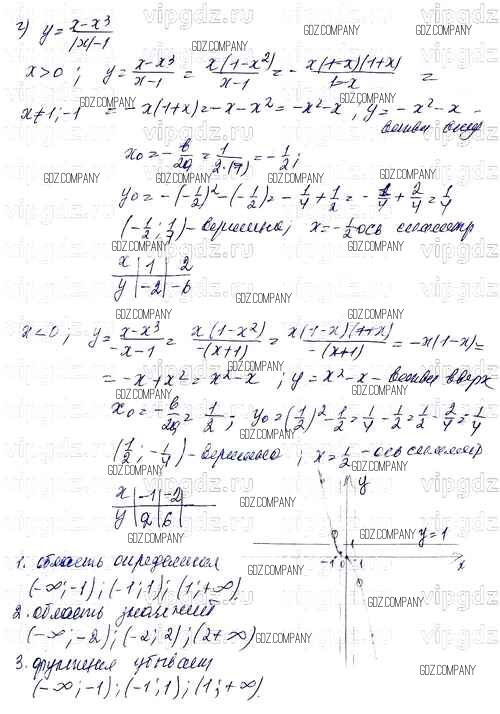 г) y = x-x³ / |x|-1
x>0 ; y = x-x³ / x-1 = x(1-x²) / x-1 = - x(1-x)(1+x) / 1-x =
x≠1;-1 = -x(1+x) = -x-x² = -x²-x ; y = -x²-x -
ветви вниз
x₀ = -в/2a = 1/2·(-1) = -1/2 ;
y₀ = -(-1/2)² -(-1/2) = -1/4 + 1/2 = -1/4 + 2/4 = 1/4
(-1/2 ; 1/4) - вершина ; x = -1/2 ось симметр
x | 1 | 2
y | -2 | -6
x<0 ; y = x-x³ / -x-1 = x(1-x²) / -(x+1) = x(1-x)(1+x) / -(x+1) = -x(1-x) =
= -x+x² = x²-x ; y = x²-x - ветви вверх
x₀ = -в/2a = 1/2 ; y₀ = (1/2)² - 1/2 = 1/4 - 1/2 = 1/4 - 2/4 = -1/4
(1/2 ; -1/4) - вершина ; x = 1/2 - ось симметр
x | -1 | -2
y | 2 | 6
y
y=1
1
-1 0 1 x
1. область определения
(-∞;-1) ; (-1;1) ; (1;+∞)
2. область значений
(-∞;-2) ; (-2;2) ; (2+∞)
3. функция убывает
(-∞;-1) ; (-1;1) ; (1;+∞).
GDZ.COMPANY
vipgdz.ru